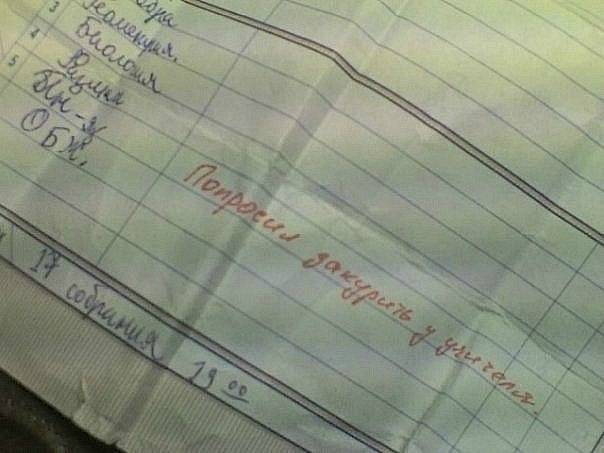 3 Геометрия.
4 Биология
Физика
5 Ин-яз
ОБЖ.
Попросил закурить у учителя.
17 собрания 19 00